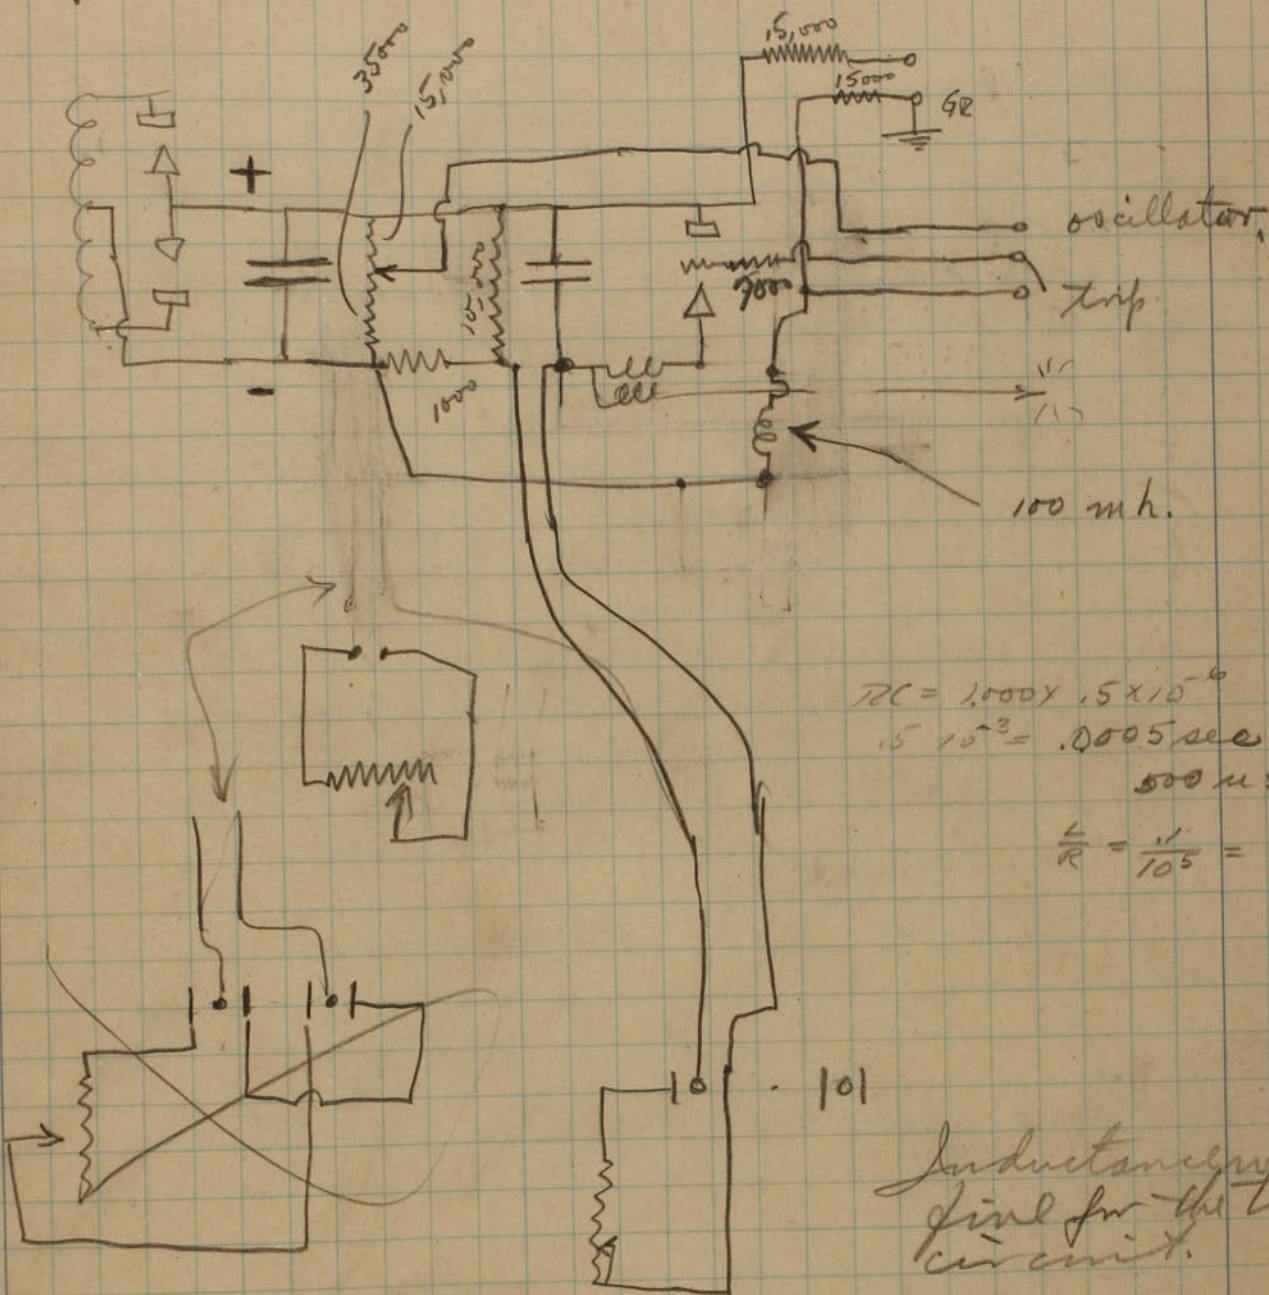 15,000
15000
GR
35000
15,000
+
oscillator.
trip
1000
-
100 mh.
RC = 1000 x .5 x 10⁻⁶
.5 10⁻³ = .0005 sec
500 u
L/R = .1/10⁵ =
|0|
fine for the
circuit.